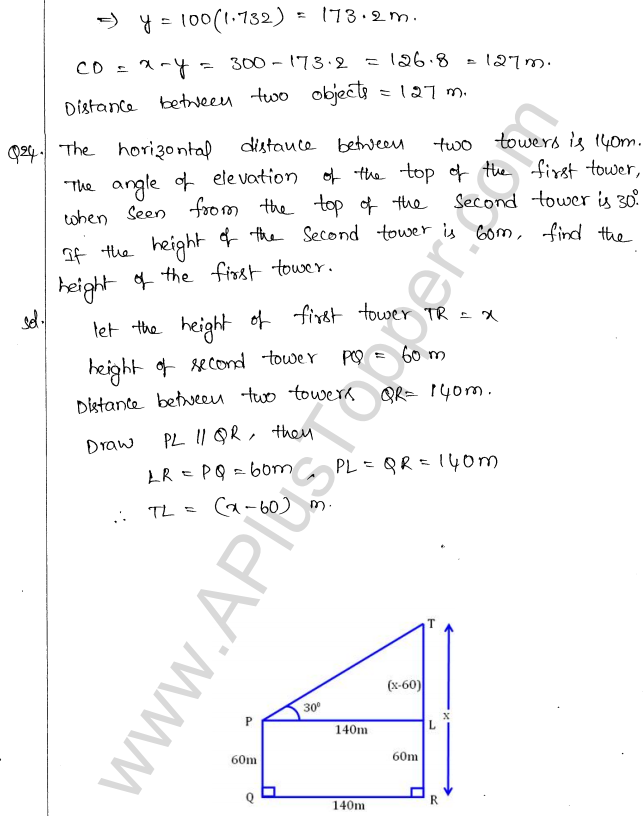 ⇒ y = 100(1.732) = 173.2m.
CD = x-y = 300-173.2 = 126.8 = 127m.
Distance between two objects = 127 m.
Q24. The horizontal distance between two towers is 140m.
The angle of elevation of the top of the first tower,
when seen from the top of the second tower is 30°.
If the height of the second tower is 60m, find the
height of the first tower.
Sol. let the height of first tower TR = x
height of second tower PQ = 60 m
Distance between two towers QR= 140m.
Draw PL || QR, then
LR = PQ = 60m, PL = QR = 140m
∴ TL = (x-60) m.
T
(x-60)
30⁰
P
140m
L
x
60m
60m
Q
140m
R
www.APlusTopper.com